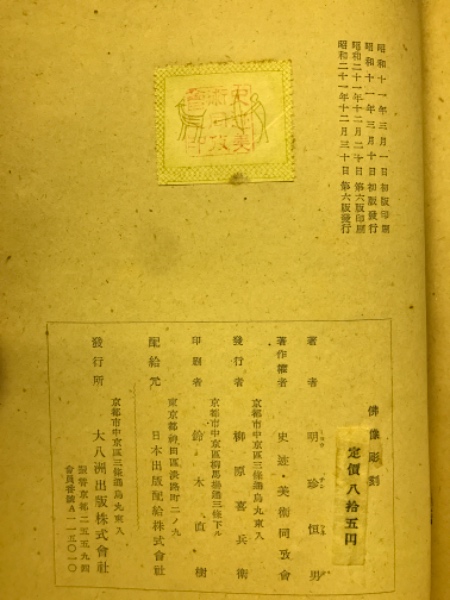 昭和十一年三月一日初版印刷
昭和十一年三月十日初版發行
昭和二十一年十二月二十日第六版印刷
昭和二十一年十二月三十日第六版發行
史迹美
術同攷
會
佛像彫刻
定價八拾五円
著者 明珍恒男
著作權者 史迹・美術同攷會
京都市中京區三條通烏丸東入
發行者 柳原喜兵衛
京都市中京區
印刷者 鈴木直樹
東京都神田區淡路町二ノ九
配給元 日本出版配給株式會社
京都市中京區三條通烏丸東入
發行所 大八洲出版株式會社
振替京都二五五九四
會員番號A一一五〇一〇